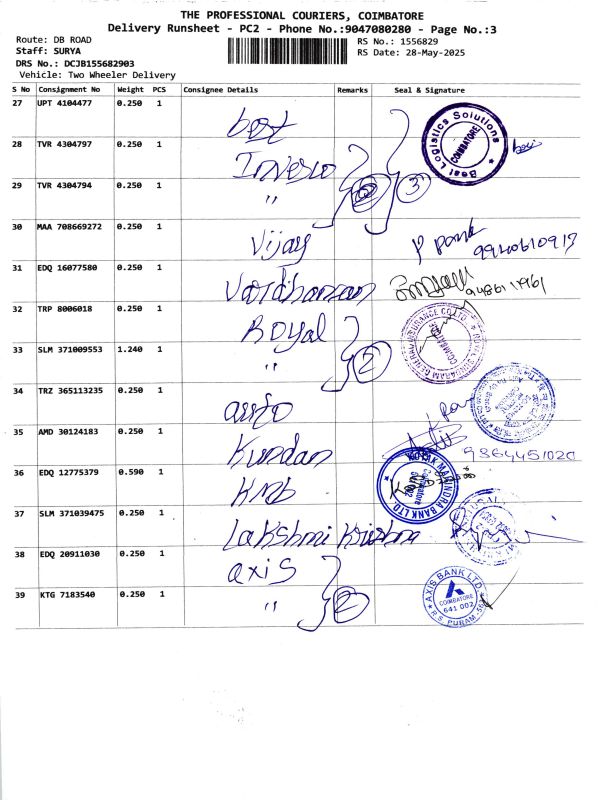 THE PROFESSIONAL COURIERS, COIMBATORE
Delivery Runsheet - PC2 - Phone No.:9047080280 - Page No.:3
Route: DB ROAD
RS No.: 1556829
Staff: SURYA
RS Date: 28-May-2025
DRS No.: DCJB155682903
Vehicle: Two Wheeler Delivery
S No Consignment No Weight PCS Consignee Details Remarks Seal & Signature
27 UPT 4104477 0.250 1 best
Best Logistics Solutions COIMBATORE
28 TVR 4304797 0.250 1 Invesco
29 TVR 4304794 0.250 1 " 3
30 MAA 708669272 0.250 1 Vijay
31 EDQ 16077580 0.250 1 Vardhaman
32 TRP 8006018 0.250 1 Royal
33 SLM 371009553 1.240 1 " 2
34 TRZ 365113235 0.250 1
35 AMD 30124183 0.250 1 Kundan 9364451020
36 EDQ 12775379 0.590 1 KMB
KOTAK MAHINDRA BANK LTD.
37 SLM 371039475 0.250 1 Lakshmi Krishna
38 EDQ 20911030 0.250 1 axis
39 KTG 7183540 0.250 1 " 2
AXIS BANK LTD. COIMBATORE 641 002 R.S. PURAM